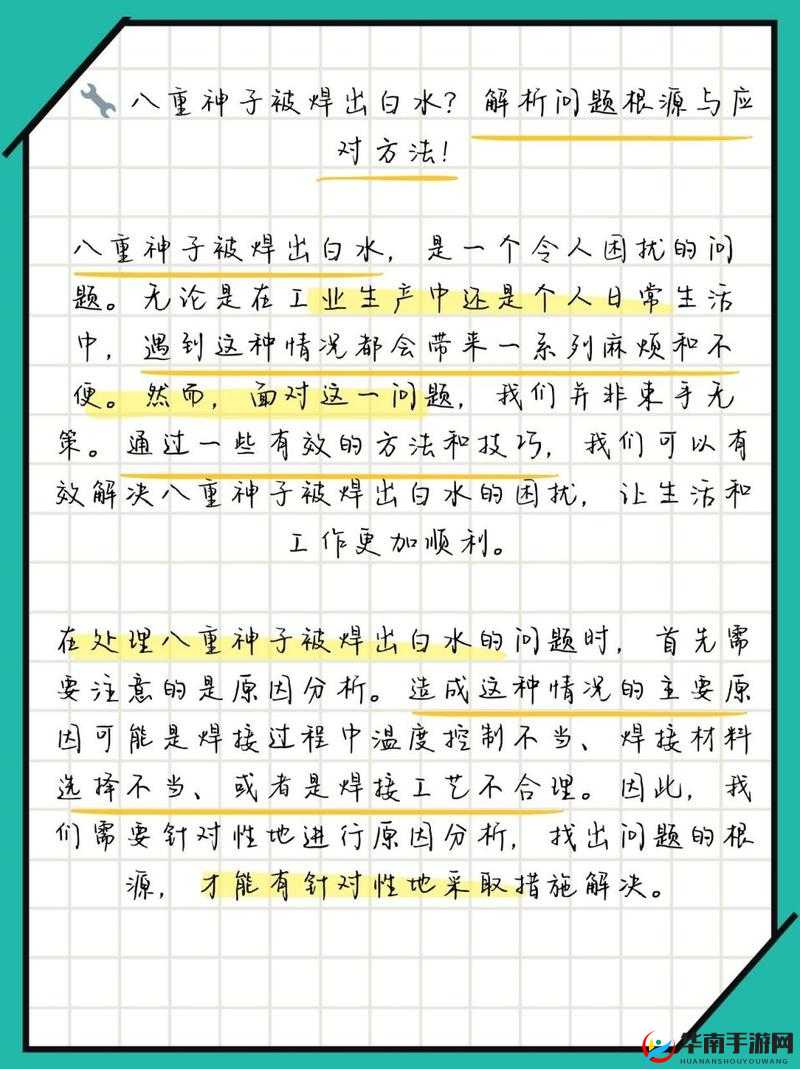 八重神子被焊出白水？解析问题根源与应
对方法！
八重神子被焊出白水，是一个令人困扰的问
题。无论是在工业生产中还是个人日常生活
中，遇到这种情况都会带来一系列麻烦和不
便。然而，面对这一问题，我们并非束手无
策。通过一些有效的方法和技巧，我们可以有
效解决八重神子被焊出白水的困扰，让生活和
工作更加顺利。
在处理八重神子被焊出白水的问题时，首先需
要注意的是原因分析。造成这种情况的主要原
因可能是焊接过程中温度控制不当、焊接材料
选择不当、或者是焊接工艺不合理。因此，我
们需要针对性地进行原因分析，找出问题的根
源，才能有针对性地采取措施解决。
华南手游网
HUANANSHOUYOUWANG